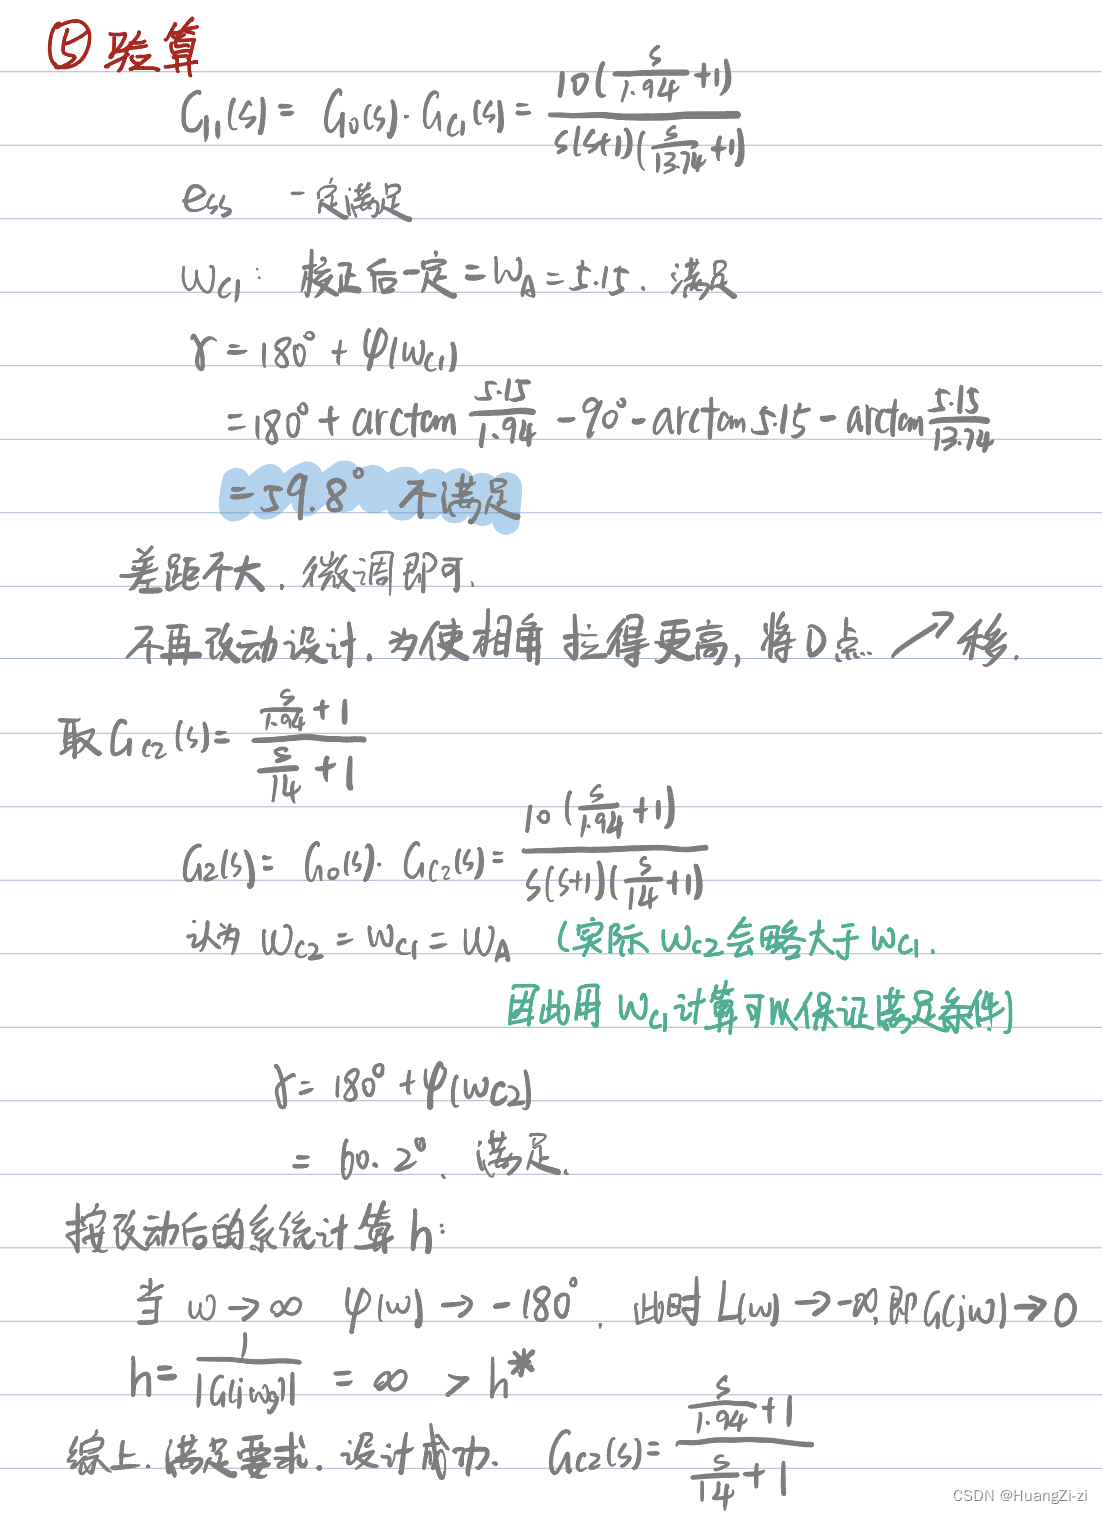 ⑤ 验算
G₁(s) = G₀(s)·G_{C1}(s) = \frac{10(\frac{s}{1.94}+1)}{s(s+1)(\frac{s}{13.74}+1)}
e_{ss} 一定满足
W_{C1}: 校正后一定=W_A=5.15. 满足
γ=180°+φ(W_{C1})
=180°+arctan\frac{5.15}{1.94}-90°-arctan5.15-arctan\frac{5.15}{13.74}
=59.8° 不满足
差距不大. 微调即可.
不再改动设计. 为使相角拉得更高, 将D点 ↗移.
取G_{C2}(s)=\frac{\frac{s}{1.94}+1}{\frac{s}{14}+1}
G₂(s)= G₀(s)·G_{C2}(s)=\frac{10(\frac{s}{1.94}+1)}{s(s+1)(\frac{s}{14}+1)}
认为 W_{C2}=W_{C1}=W_A (实际 W_{C2}会略大于 W_{C1}.
因此用 W_{C1}计算可以保证满足条件)
γ=180°+φ(W_{C2})
=60.2°. 满足.
按改动后的系统计算 h:
当 w→∞ φ(w)→-180°. 此时 L(w)→-∞,即G(jw)→0
h=\frac{1}{|G(jw_g)|} = ∞ > h*
综上. 满足要求. 设计成功. G_{C2}(s)=\frac{\frac{s}{1.94}+1}{\frac{s}{14}+1}
CSDN @HuangZi-zi